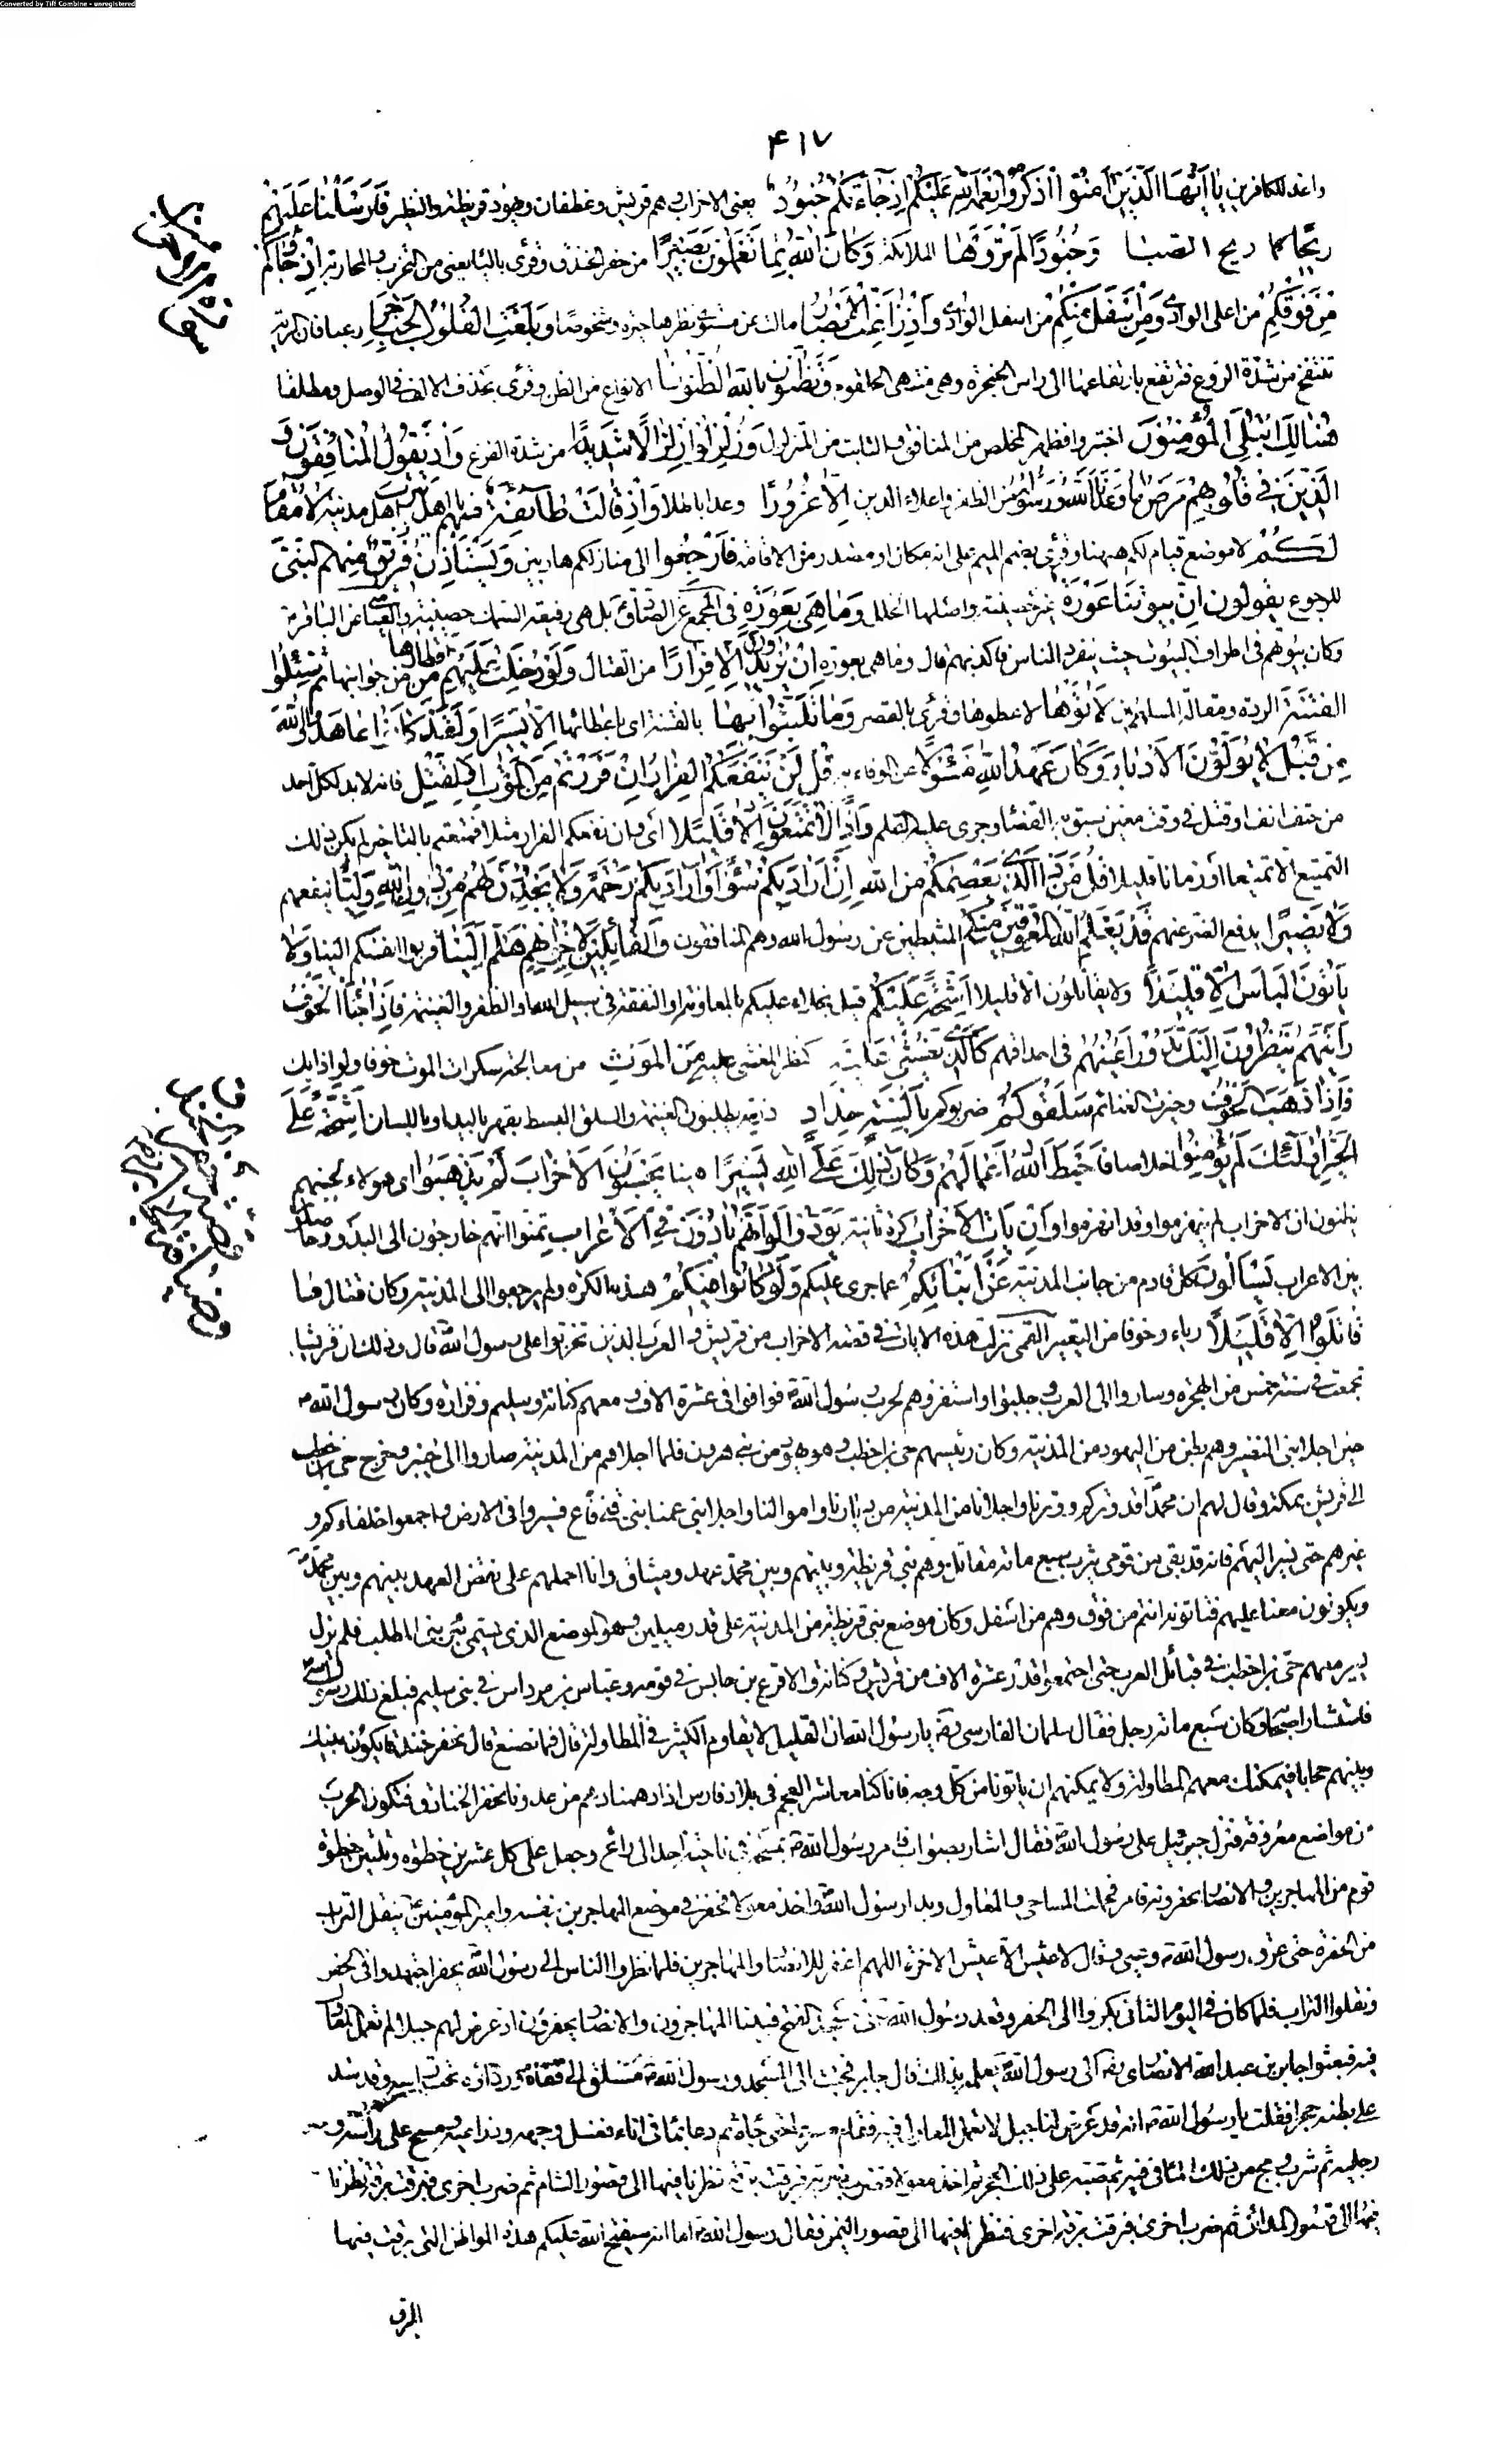 Converted by Tiff Combine - unregistered
۴۱۷
واعد للكافرين يا اَيُّهَا الَّذينَ امَنُوا اذكُرُوا نِعمَةَ اللهِ عَلَيكُم اِذ جاءَتكُم جُنُودٌ يعنى الاحزاب وهم قريش وغطفان ويهود قريظة والنظير فَاَرسَلنا عَلَيهِم
ريحًا كما ريح الصبا وَجُنُودًا لَم تَرَوها الملائكة وَكانَ اللهُ بِما تَعمَلُونَ بَصيرًا من حفر الخندق وقرئ بالياء يعنى من التحزب والمحاربة اِذ جاؤُكُم
مِن فَوقِكُم من اعلى الوادى وَمِن اَسفَلَ مِنكُم من اسفل الوادى وَاِذ زاغَتِ الاَبصارُ مالت عن مستوى نظرها حيرة وشخوصا وَبَلَغَتِ القُلُوبُ الحَناجِرَ رعبا فان الرية
تنتفخ من شدة الروع فترتفع بارتفاعها الى راس الحنجرة وهى منتهى الحلقوم وَتَظُنُّونَ بِاللهِ الظُّنُونا الانواع من الظن وقرئ بحذف الالف فى الوصل ومطلقا
هُنالِكَ ابتُلِىَ المُؤمِنُونَ اختبروا فظهر المخلص من المنافق والثابت من المتزلزل وَزُلزِلُوا زِلزالًا شَديدًا من شدة الفزع وَاِذ يَقُولُ المُنافِقُونَ وَ
الَّذينَ فى قُلُوبِهِم مَرَضٌ ما وَعَدَنَا اللهُ وَرَسُولُهُ من الظفر واعلاء الدين اِلّا غُرُورًا وعدا باطلا وَاِذ قالَت طائِفَةٌ مِنهُم يا اَهلَ يَثرِبَ اهل مدينة لا مُقامَ
لَكُم لا موضع قيام لكم ههنا وقرئ بضم الميم على انه مكان او مصدر من الاقامة فَارجِعُوا الى منازلكم هاربين وَيَستَأذِنُ فَريقٌ مِنهُمُ النَّبِىَّ
للرجوع يَقُولُونَ اِنَّ بُيُوتَنا عَورَةٌ غير حصينة واصلها الخلل وَما هِىَ بِعَورَةٍ فى المجمع عن الصادق ع بل هى رفيعة السمك حصينة والعياشى عن الباقر ع
وكان بيوتهم فى اطراف البيوت حيث ينفرد الناس فاكذبهم قال وما هى بعورة اِن يُريدُونَ اِلّا فِرارًا من القتال وَلَو دُخِلَت عَلَيهِم مِن اَقطارِها من جوانبها ثُمَّ سُئِلُوا
الفِتنَةَ الردة ومقاتلة المسلمين لَآتَوها لاعطوها وقرئ بالقصر وَما تَلَبَّثُوا بِها بالفتنة اى باعطائها اِلّا يَسيرًا وَلَقَد كانُوا عاهَدُوا اللهَ
مِن قَبلُ لا يُوَلُّونَ الاَدبارَ وَكانَ عَهدُ اللهِ مَسئُولًا عن الوفاء به قُل لَن يَنفَعَكُمُ الفِرارُ اِن فَرَرتُم مِنَ المَوتِ اَوِ القَتلِ فانه لابد لكل احد
من حتف انف او قتل فى وقت معين سبق به القضاء وجرى عليه القلم وَاِذًا لا تُمَتَّعُونَ اِلّا قَليلًا اى وان نفعكم الفرار مثلا فمتعتم بالتاخير لم يكن ذلك
التمتيع الا تمتيعا او زمانا قليلا قُل مَن ذَا الَّذى يَعصِمُكُم مِنَ اللهِ اِن اَرادَ بِكُم سُوءًا اَو اَرادَ بِكُم رَحمَةً وَلا يَجِدُونَ لَهُم مِن دُونِ اللهِ وَلِيًّا ينفعهم
وَلا نَصيرًا يدفع الضر عنهم قَد يَعلَمُ اللهُ المُعَوِّقينَ مِنكُم المثبطين عن رسول الله وهم المنافقون وَالقائِلينَ لِاِخوانِهِم هَلُمَّ اِلَينا قربوا انفسكم الينا وَلا
يَأتُونَ البَأسَ اِلّا قَليلًا ولا يقاتلون الا قليلا اَشِحَّةً عَلَيكُم قيل بخلاء عليكم بالمعاونة او النفقة فى سبيل الله او الظفر والغنيمة فَاِذا جاءَ الخَوفُ
رَاَيتَهُم يَنظُرُونَ اِلَيكَ تَدُورُ اَعيُنُهُم فى احداقهم كَالَّذى يُغشى عَلَيهِ كنظر المغشى عليه مِنَ المَوتِ من معالجة سكرات الموت خوفا ولواذا بك
فَاِذا ذَهَبَ الخَوفُ وحيزت الغنائم سَلَقُوكُم ضربوكم بِاَلسِنَةٍ حِدادٍ ذربة يطلبون الغنيمة والسلق البسط بقهر باليد او باللسان اَشِحَّةً عَلَى
الخَيرِ اُولئِكَ لَم يُؤمِنُوا اخلاصا فَاَحبَطَ اللهُ اَعمالَهُم وَكانَ ذلِكَ عَلَى اللهِ يَسيرًا هينا يَحسَبُونَ الاَحزابَ لَم يَذهَبُوا اى هؤلاء لجبنهم
يظنون ان الاحزاب لم ينهزموا وقد انهزموا وَاِن يَأتِ الاَحزابُ كرة ثانية يَوَدُّوا لَو اَنَّهُم بادُونَ فِى الاَعرابِ تمنوا انهم خارجون الى البدو وحاصلون
بين الاعراب يَسئَلُونَ كل قادم من جانب المدينة عَن اَنبائِكُم عما جرى عليكم وَلَو كانُوا فيكُم هذه الكرة ولم يرجعوا الى المدينة وكان قتال ما
قاتَلُوا اِلّا قَليلًا رياء وخوفا من التعيير القمى نزلت هذه الايات فى قصة الاحزاب من قريش والعرب الذين تحزبوا على رسول الله قال وذلك ان قريشا
تجمعت فى سنة خمس من الهجرة وساروا الى العرب وجلبوا واستنفروهم لحرب رسول الله ص فوافوا فى عشرة الاف ومعهم كنانة وسليم وفزارة وكان رسول الله ص
حين اجلا بنى النضير وهم بطن من اليهود من المدينة وكان رئيسهم حى بن اخطب وهو يهودى من بنى هرون فلما اجلاهم من المدينة صاروا الى خيبر وخرج حى بن اخطب
الى قريش بمكة وقال لهم ان محمدا قد وتركم ووترنا واجلانا من المدينة من ديارنا واموالنا واجلا بنى عمنا بنى قينقاع فسيروا فى الارض واجمعوا حلفاءكم و
غيرهم حتى نسير اليهم فانه قد بقى من قومى بيثرب سبع مائة مقاتل وهم بنى قريظة وبينهم وبين محمد عهد وميثاق وانا احملهم على نقض العهد بينهم وبين محمد ص
ويكونون معنا عليهم فتاتونه انتم من فوق وهم من اسفل وكان موضع بنى قريظة من المدينة على قدر ميلين وهو الموضع الذى يسمى بئر بنى المطلب فلم يزل
يسير معهم حى بن اخطب فى قبائل العرب حتى اجتمعوا قدر عشرة الاف من قريش وكنانة والاقرع بن حابس فى قومه وعباس بن مرداس فى بنى سليم فبلغ ذلك رسول الله ص
فاستشار اصحابه وكان سبع مائة رجل فقال سلمان الفارسى ره يا رسول الله ان القليل لا يقاوم الكثير فى المطاولة قال فما نصنع قال نحفر خندقا يكون بينك
وبينهم حجابا فيمكنك معهم المطاولة ولا يمكنهم ان ياتونا من كل وجه فانا كنا معاشر العجم فى بلاد فارس اذا دهمنا دهم من عدونا نحفر الخنادق فتكون الحرب
من مواضع معروفة فنزل جبرئيل على رسول الله ص فقال اشار بصواب فامر رسول الله ص بمسحه من ناحية احد الى راتج وجعل على كل عشرين خطوة وثلثين خطوة
قوم من المهاجرين والانصار يحفرونه فامر فحملت المساحى والمعاول وبدا رسول الله ص واخذ معولا فحفر فى موضع المهاجرين بنفسه وامير المؤمنين ع ينقل التراب
من الحفرة حتى عرق رسول الله ص وعيى وقال لا عيش الا عيش الاخرة اللهم اغفر للانصار والمهاجرين فلما نظروا الناس الى رسول الله ص يحفر اجتهدوا فى الحفر
ونقلوا التراب فلما كان فى اليوم الثانى بكروا الى الحفر وقعد رسول الله ص فى مسجد الفتح فبينا المهاجرون والانصار يحفرون اذ عرض لهم جبل لم تعمل المعاول
فيه فبعثوا جابر بن عبد الله الانصارى ره الى رسول الله ص يعلمه بذلك قال جابر فجئت الى المسجد ورسول الله ص مستلقى على قفاه ورداؤه تحت راسه وقد شد
على بطنه حجرا فقلت يا رسول الله ص انه قد عرض لنا جبل لا تعمل المعاول فيه فقام مسرعا حتى جاءه ثم دعا بماء فى اناء فغسل وجهه وذراعيه ومسح على راسه و
رجليه ثم شرب ومج من ذلك الماء فى فيه ثم صبه على ذلك الحجر ثم اخذ معولا فضرب ضربة فبرقت برقة نظرنا فيها الى قصور الشام ثم ضرب اخرى فبرقت برقة نظرنا
فيها الى قصور المدائن ثم ضرب اخرى فبرقت برقة اخرى فنظرنا فيها الى قصور اليمن فقال رسول الله ص اما انه سيفتح الله عليكم هذه المواطن التى برقت فيها
البرق